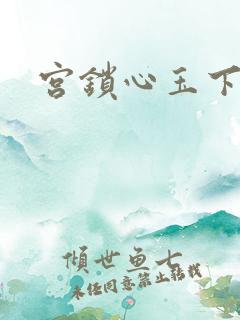 宮鎖心玉下
傾世魚七
未經同意禁止轉載